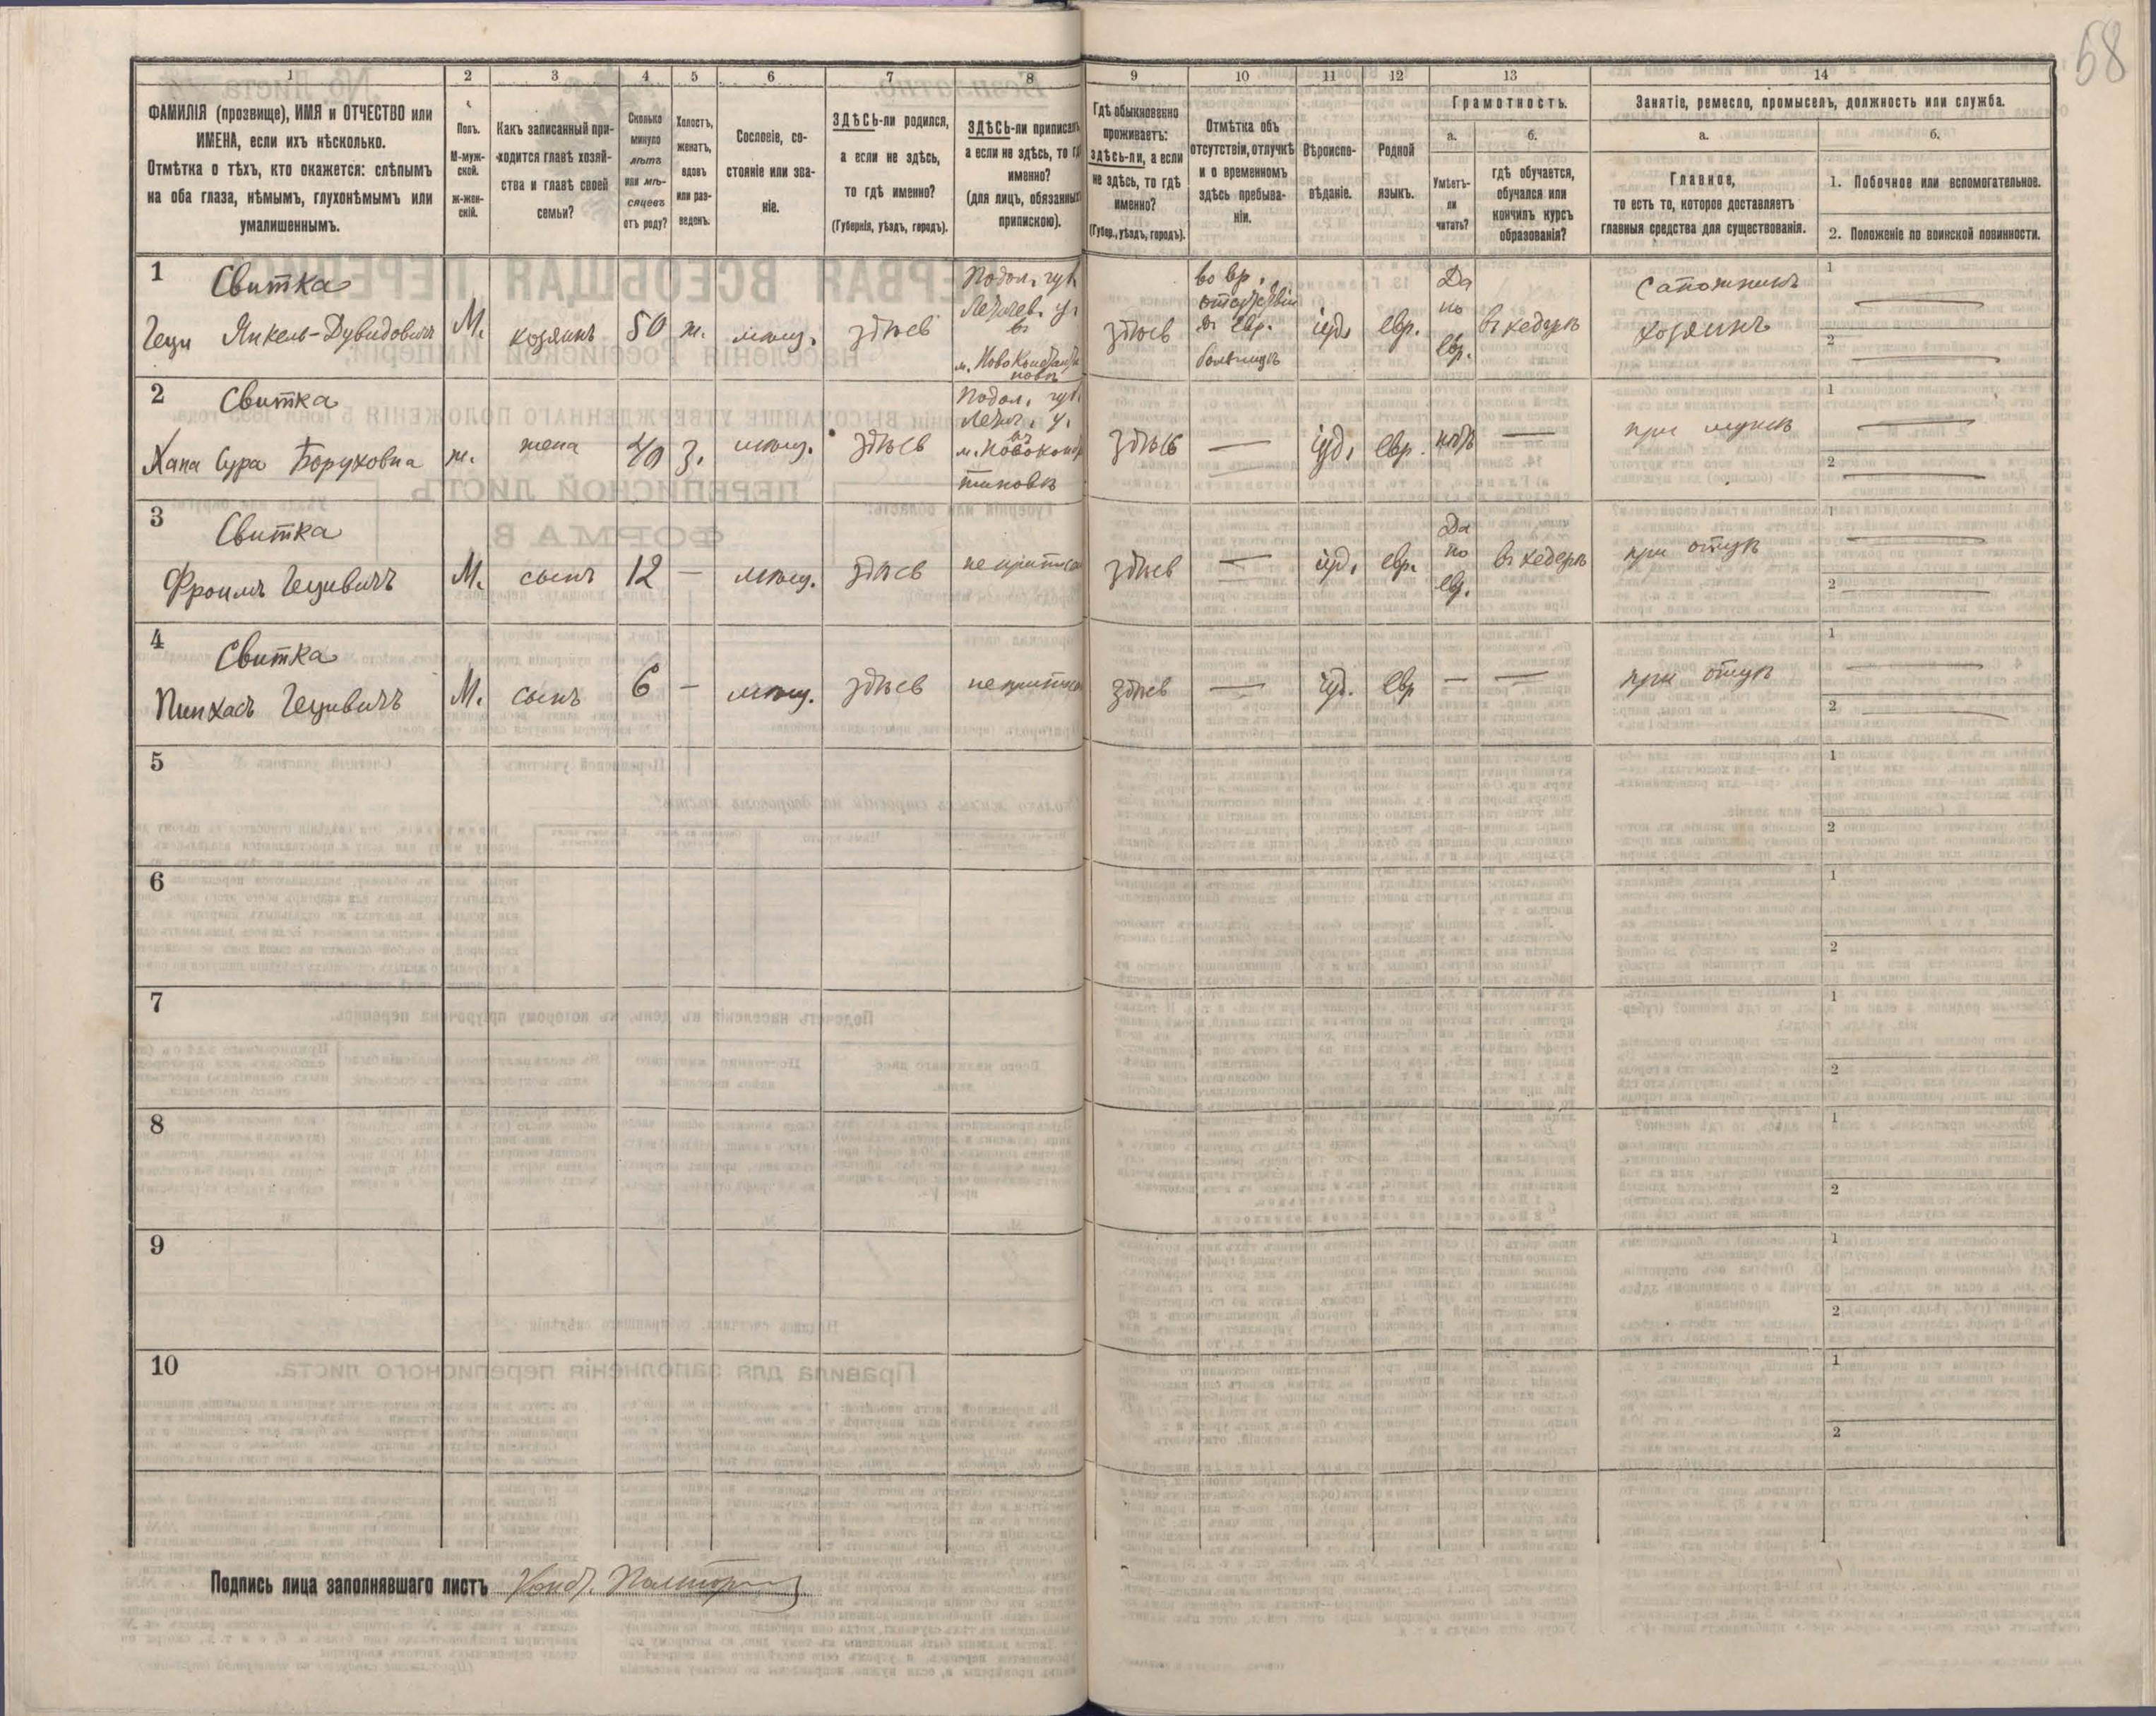 58
1
2
3
4
5
6
7
8
9
10
11
12
13
14
ФАМИЛІЯ (прозвище), ИМЯ и ОТЧЕСТВО или
ИМЕНА, если ихъ нѣсколько.
Отмѣтка о тѣхъ, кто окажется: слѣпымъ
на оба глаза, нѣмымъ, глухонѣмымъ или
умалишеннымъ.
Полъ.
М-муж-
ской.
ж-жен-
скій.
Какъ записанный при-
ходится главѣ хозяй-
ства и главѣ своей
семьи?
Сколько
минуло
лѣтъ
или мѣ-
сяцевъ
отъ роду?
Холостъ,
женатъ,
вдовъ
или раз-
веденъ.
Сословіе, со-
стояніе или зва-
ніе.
ЗДѢСЬ-ли родился,
а если не здѣсь,
то гдѣ именно?
(Губернія, уѣздъ, городъ).
ЗДѢСЬ-ли приписанъ,
а если не здѣсь, то гдѣ
именно?
(для лицъ, обязанныхъ
припискою).
Гдѣ обыкновенно
проживаетъ:
здѣсь-ли, а если
не здѣсь, то гдѣ
именно?
(Губер., уѣздъ, городъ).
Отмѣтка объ
отсутствіи, отлучкѣ
и о временномъ
здѣсь пребыва-
ніи.
Вѣроиспо-
вѣданіе.
Родной
языкъ.
Грамотность.
а.
Умѣетъ-
ли
читать?
б.
гдѣ обучается,
обучался или
кончилъ курсъ
образованія?
Занятіе, ремесло, промыселъ, должность или служба.
а.
Главное,
то есть то, которое доставляетъ
главныя средства для существованія.
б.
1. Побочное или вспомогательное.
2. Положеніе по воинской повинности.
1
Свитка
Геци Янкель-Дувидовичъ
М.
хозяинъ
50
ж.
мѣщ.
здѣсь
Подол. губ.
Летичев. у.
въ
м. Новоконстанти
новѣ
здѣсь
во вр.
отсутствіи
въ евр.
больницѣ
іуд.
евр.
Да
по
евр.
въ хедерѣ
сапожникъ
хозяинъ
1
2
2
Свитка
Хана Сура Боруховна
ж.
жена
40
З.
мѣщ.
здѣсь
Подол. губ.
Летич. у.
въ
м. Новоконст
тиновѣ
здѣсь
—
іуд.
евр.
нѣтъ
—
при мужѣ
1
2
3
Свитка
Фроимъ Гецивичъ
М.
сынъ
12
—
мѣщ.
здѣсь
не приписа
здѣсь
—
іуд.
евр.
Да
по
евр.
въ хедерѣ
при отцѣ
1
2
4
Свитка
Пинхасъ Гецивичъ
М.
сынъ
6
—
мѣщ.
здѣсь
не приписа
здѣсь
—
іуд.
евр
—
—
при отцѣ
1
2
5
1
2
6
1
2
7
1
2
8
1
2
9
1
2
10
1
2
Подпись лица заполнявшаго листъ